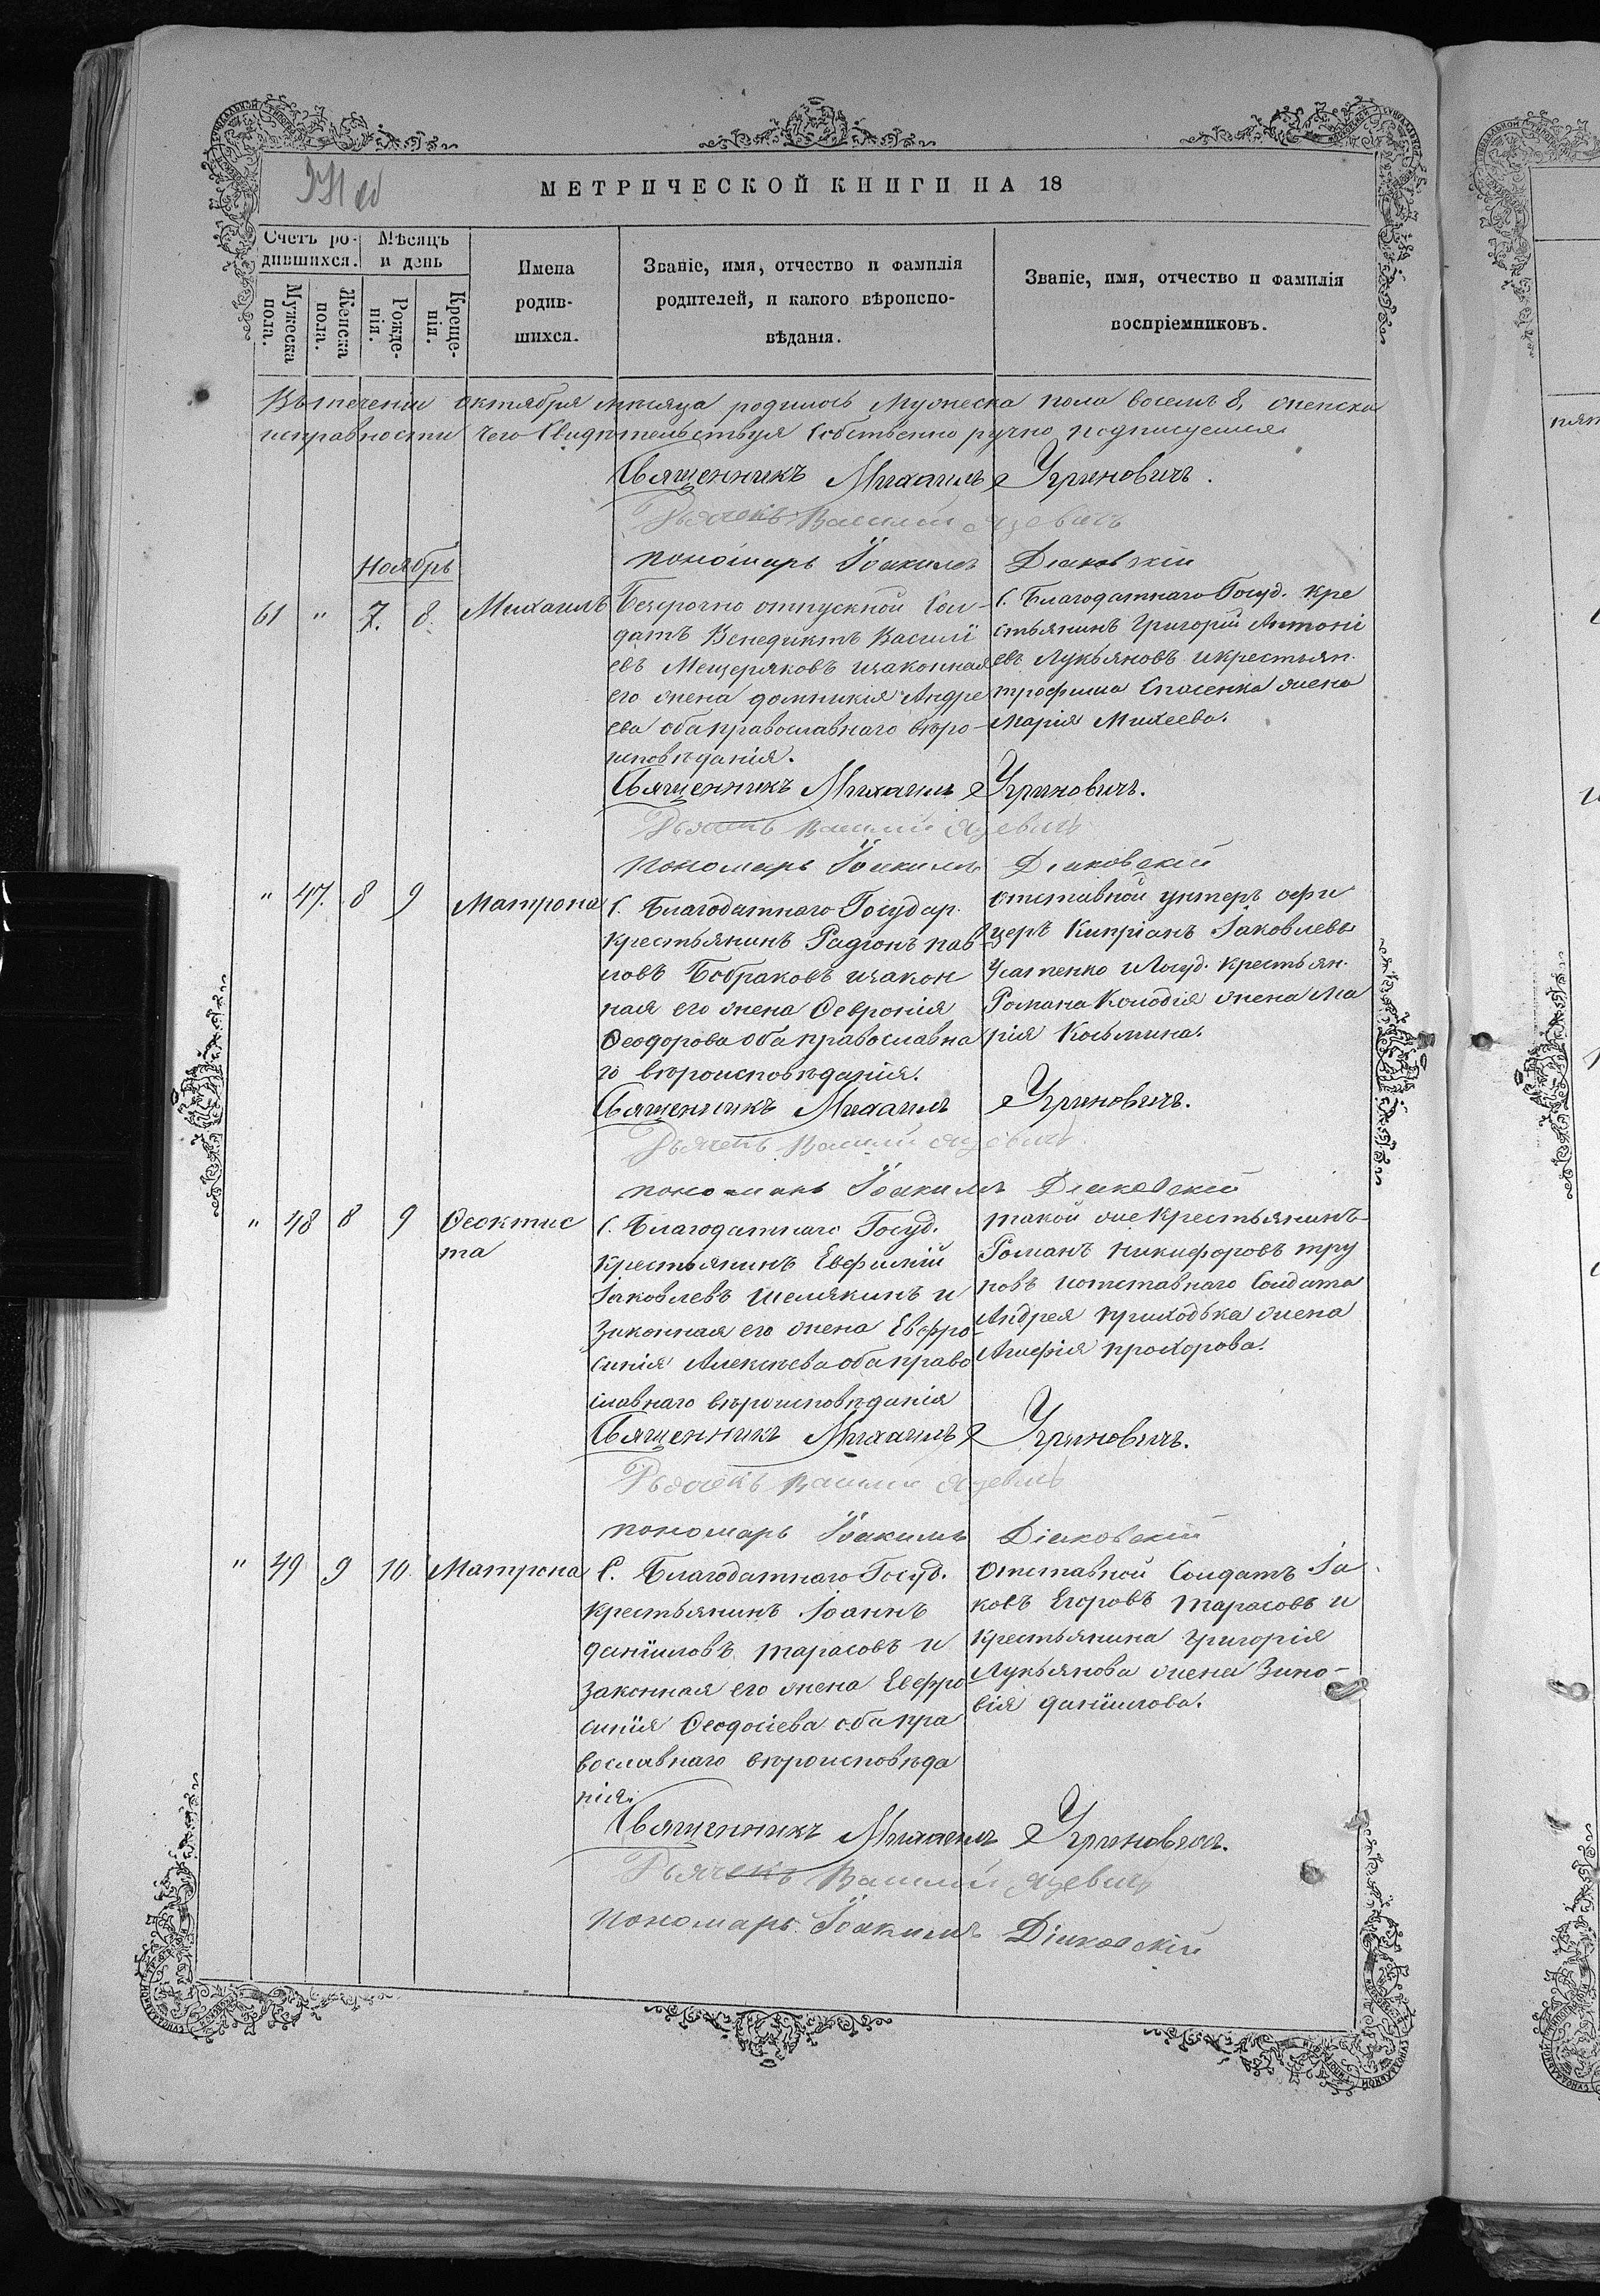 МЕТРИЧЕСКОЙ КНИГИ НА 18
Счетъ ро-
дившихся.
Мѣсяцъ
и день
Мужеска
пола.
Женска
пола.
Рожде-
нія.
Креще-
нія.
Имена
родив-
шихся.
Званіе, имя, отчество и фамилія
родителей, и какого вѣроиспо-
вѣданія.
Званіе, имя, отчество и фамилія
воспріемниковъ.
Въ теченіи октября мѣсяца родилось Мужеска пола восемь 8, женска
исправности чего Свидѣтельствуя Собственно ручно подписуемся
Священникъ Михаилъ Угриновичъ.
Дьячекъ Василій
пономарь Іоакимъ Діаковскій
Ноябрь
61 " 7. 8. Михаилъ
Безсрочно отпускной Сол-
датъ Венедиктъ Василі
евъ Мещеряковъ и законная
его жена домникія Андре
ева оба православнаго вѣро-
исповѣданія.
С. Благодатнаго Госуд. Кре
стьянинъ Григорій Антоні
евъ Лукьяновъ и крестьян.
трофима Спасенка жена
Марія Михеева.
Священникъ Михаилъ Угриновичъ.
Дьячекъ Василій
пономарь Іоакимъ Діаковскій
" 47. 8 9 Матрона
С. Благодатнаго Государ.
крестьянинъ Радіонъ пав
ловъ Бобраковъ и закон
ная его жена Февронія
Феодорова оба православна
го вѣроисповѣданія.
отставной унтеръ офи
церъ Кипріанъ Іаковлевъ
Усатенко и Госуд. крестьян.
Романа Колодія жена Ма
рія Косьмина.
Священникъ Михаилъ Угриновичъ.
Дьячекъ Василій
пономарь Іоакимъ Діаковскій
" 48 8 9 Феоктис
та
С. Благодатнаго Госуд.
крестьянинъ Евфимій
Іаковлевъ Шемякинъ и
Законная его жена Евфро-
синія Алексѣева оба право
славнаго вѣроисповѣданія
такой же крестьянинъ
Романъ Никифоровъ тру
новъ и отставнаго Солдата
Андрея приходька жена
Агафія прохорова.
Священникъ Михаилъ Угриновичъ.
Дьячекъ Василій
пономарь Іоакимъ Діаковскій
" 49 9 10. Матрона
С. Благодатнаго Госуд.
крестьянинъ Іоаннъ
даніиловъ тарасовъ и
законная его жена Евфро
синія Феодосіева оба пра
вославнаго вѣроисповѣда
нія.
Отставной Солдатъ Іа
ковъ Егоровъ тарасовъ и
крестьянина Григорія
Лукьянова жена Зино-
вія даніилова.
Священникъ Михаилъ Угриновичъ.
Дьячекъ Василій
пономарь Іоакимъ Діаковскій